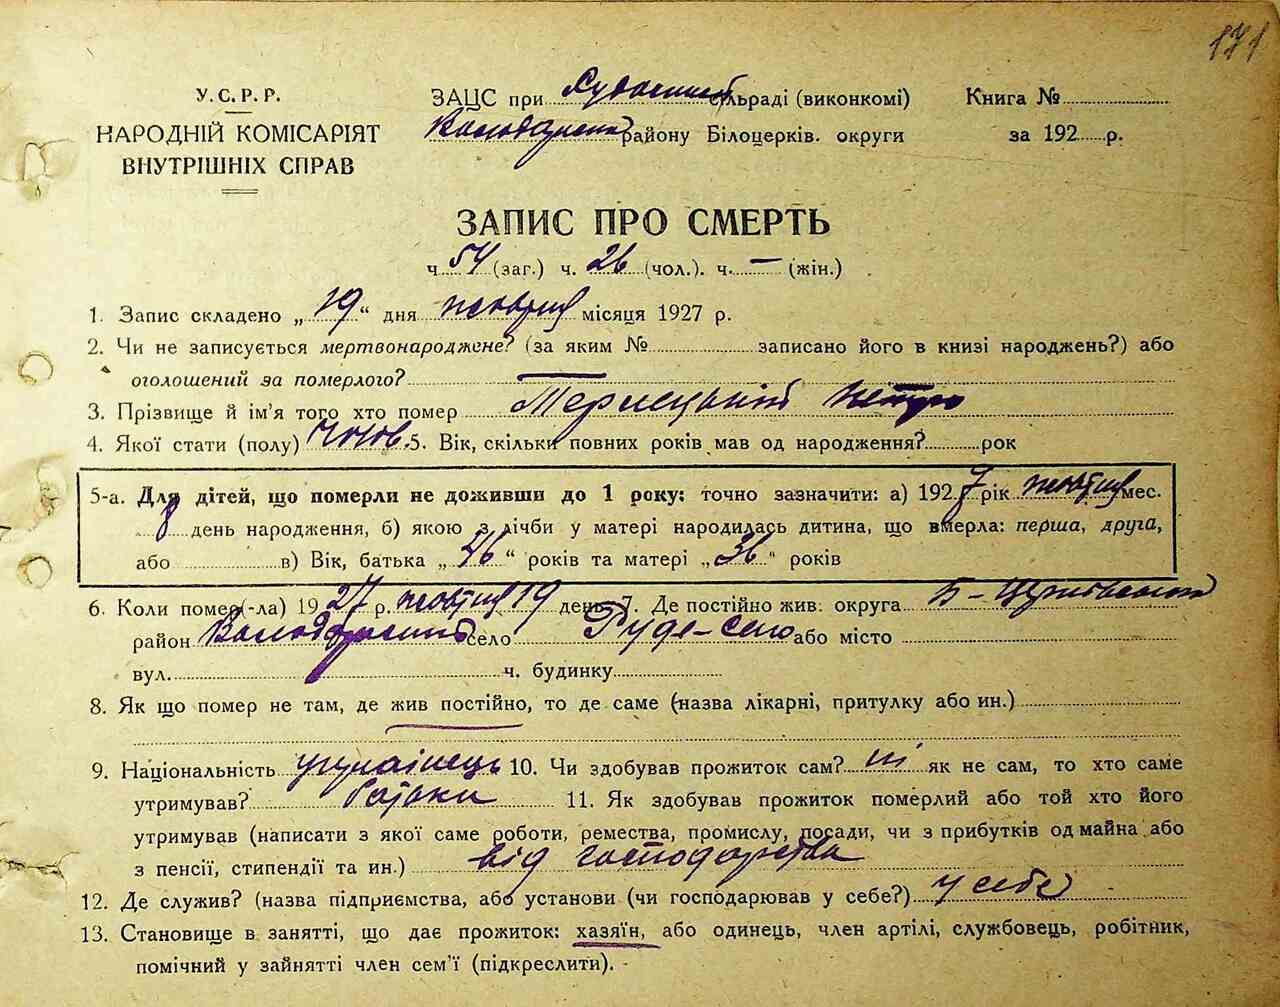 171
У.С.Р.Р.
НАРОДНІЙ КОМІСАРІЯТ
ВНУТРІШНІХ СПРАВ
ЗАЦС при сільраді (виконкомі)
району Білоцерків. округи
Книга №
за 192 р.
ЗАПИС ПРО СМЕРТЬ
ч 54 (заг.) ч. 26 (чол.). ч. — (жін.)
1. Запис складено „19“ дня жовтня місяця 1927 р.
2. Чи не записується мертвонароджене? (за яким № записано його в книзі народжень?) або
оголошений за померлого? —
3. Прізвище й ім'я того хто помер Терлецький Петро
4. Якої стати (полу) чолов. 5. Вік, скільки повних років мав од народження? рок
5-а. Для дітей, що померли не доживши до 1 року: точно зазначити: а) 1927 рік жовтня мес.
8 день народження, б) якою з лічби у матері народилась дитина, що вмерла: перша, друга,
або в) Вік, батька „46“ років та матері „36“ років
6. Коли помер(-ла) 1927 р. жовтня 19 день 7. Де постійно жив. округа Б-Церковська
район село Руде-село або місто
вул. ч. будинку
8. Як що помер не там, де жив постійно, то де саме (назва лікарні, притулку або ин.)
9. Національність українець 10. Чи здобував прожиток сам? ні як не сам, то хто саме
утримував? батьки 11. Як здобував прожиток померлий або той хто його
утримував (написати з якої саме роботи, ремества, промислу, посади, чи з прибутків од майна або
з пенсії, стипендії та ин.) від господарства
12. Де служив? (назва підприємства, або установи (чи господарював у себе?) у себе
13. Становище в занятті, що дає прожиток: хазяїн, або одинець, член артілі, службовець, робітник,
помічний у зайнятті член сем'ї (підкреслити).